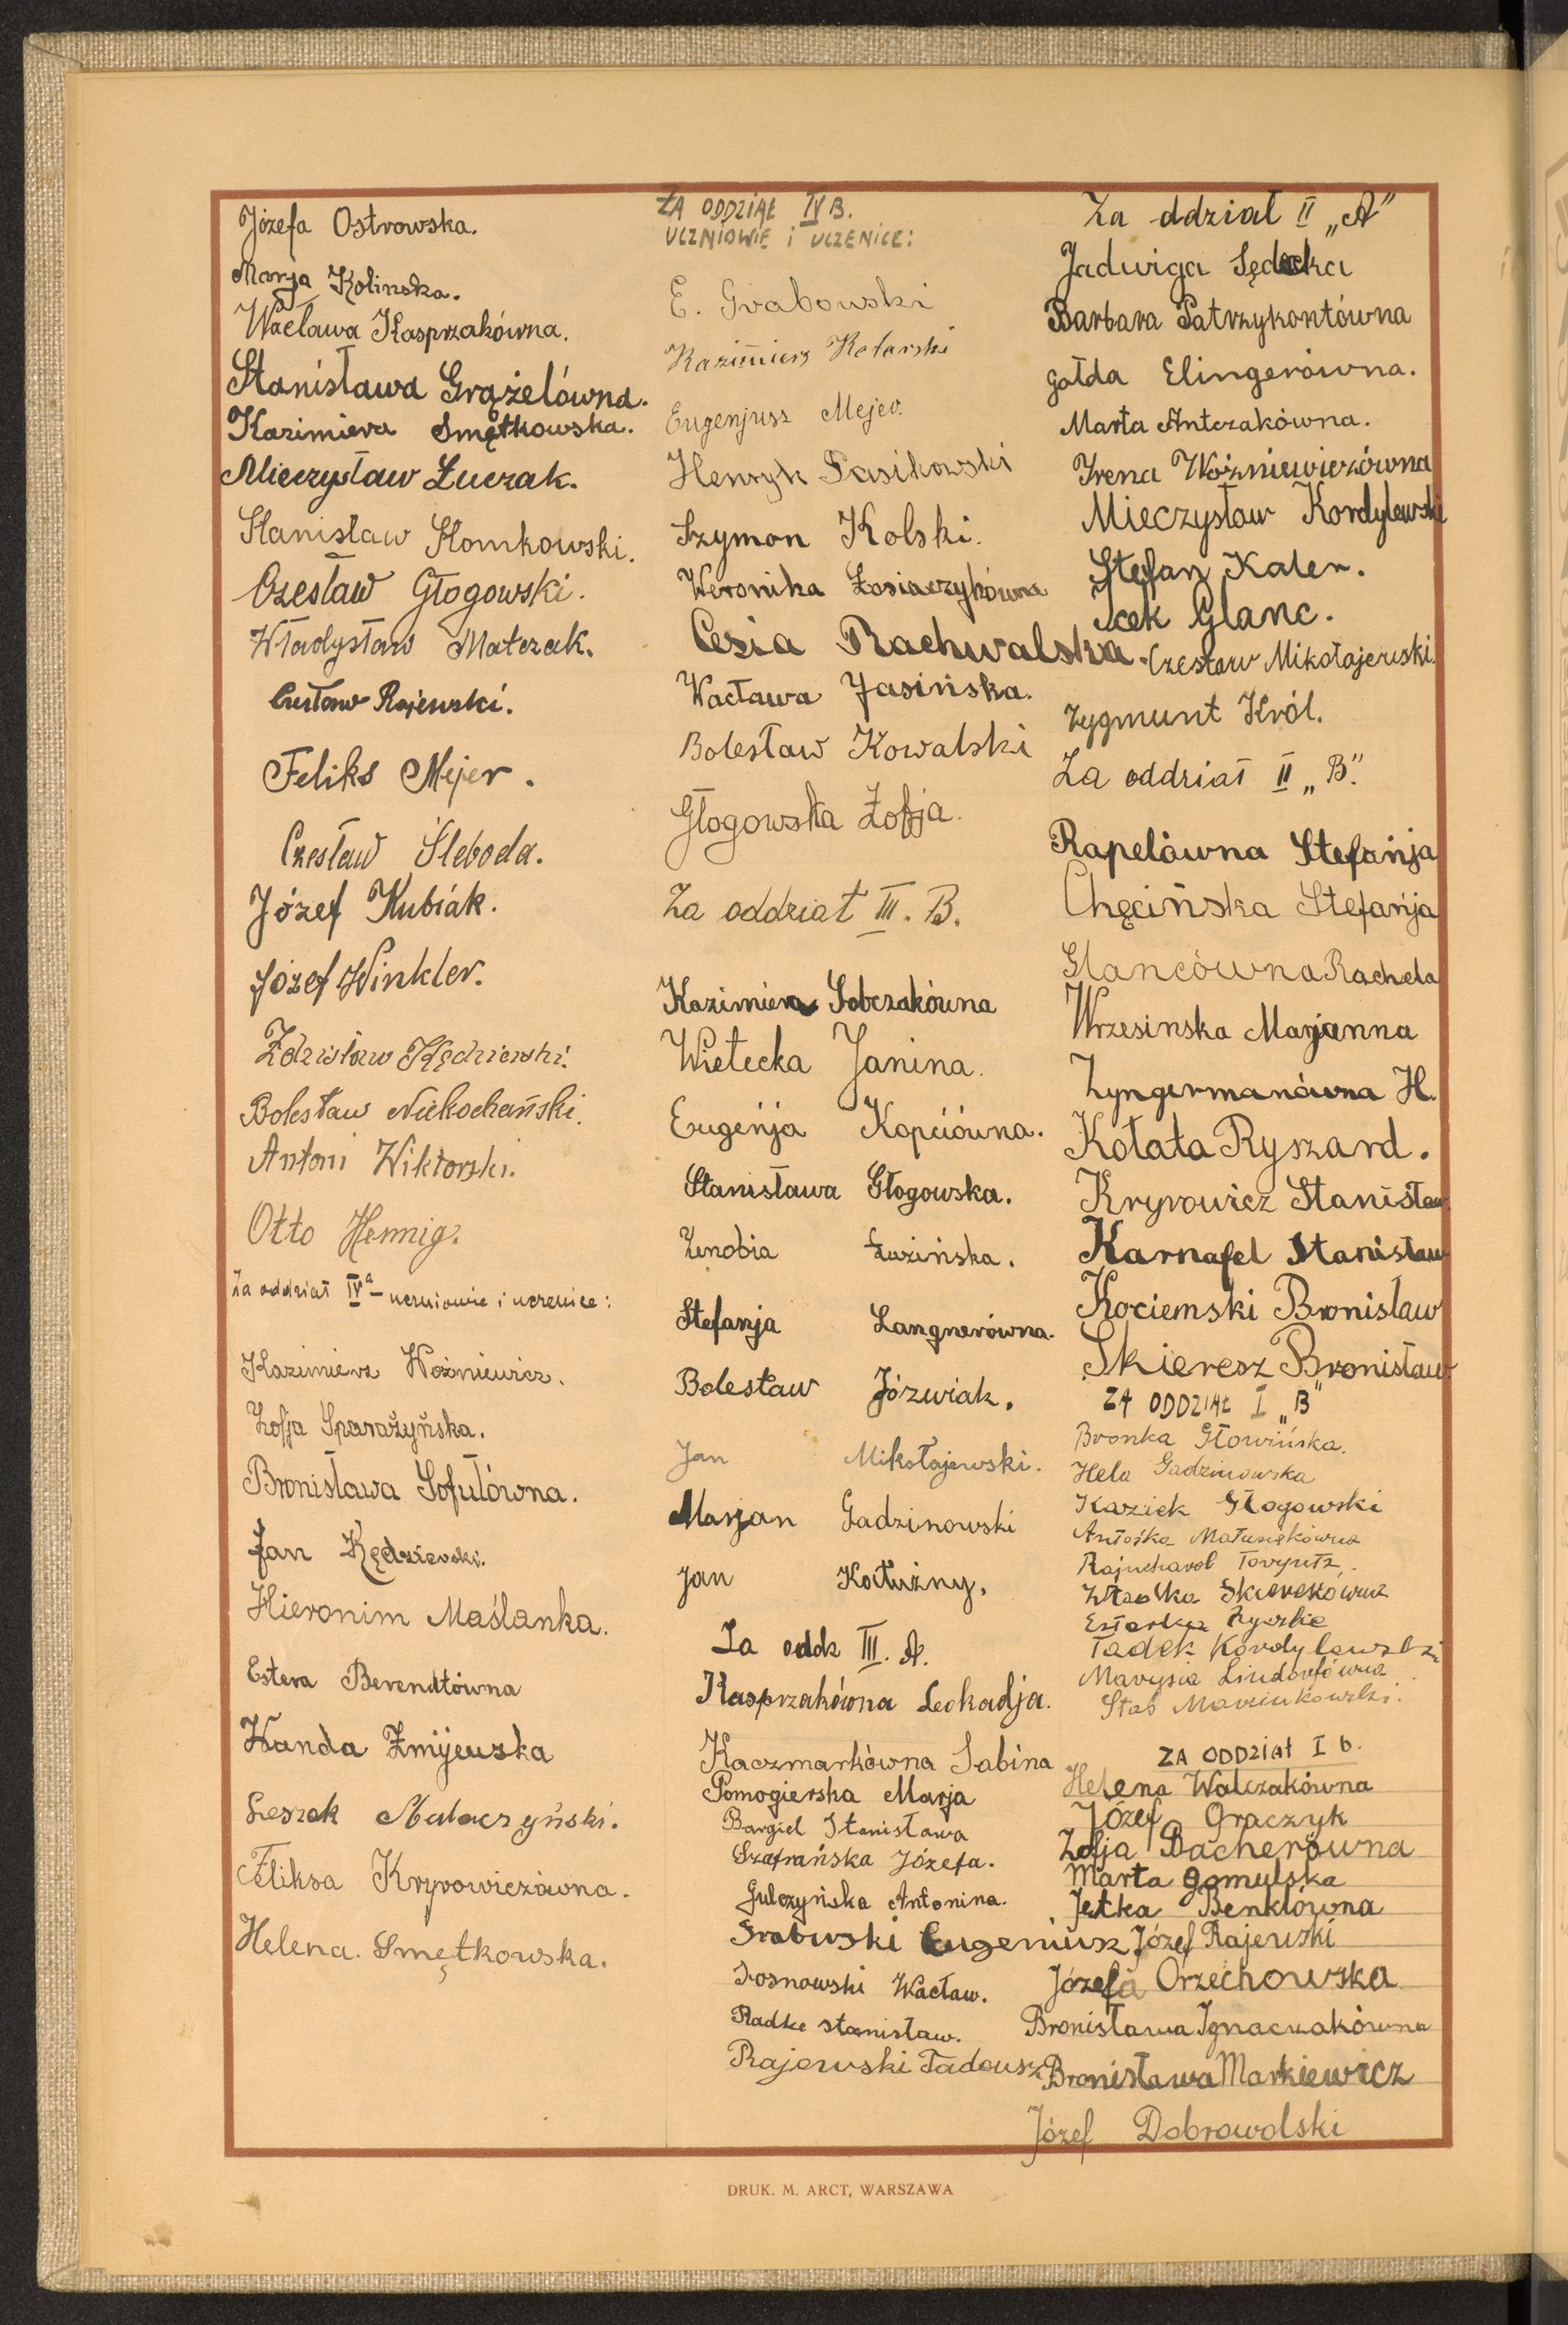 Józefa Ostrowska.
Marja Kolinska.
Wacława Kasprzakówna.
Stanisława Grążelówna.
Kazimiera Smętkowska.
Mieczysław Łuczak.
Stanisław Słomkowski.
Czesław Głogowski.
Władysław Matczak.
Czesław Rajewski.
Feliks Mejer.
Czesław Śleboda.
Józef Kubiak.
Józef Winkler.
Zdzisław Kędzierski.
Bolesław Niekochański.
Antoni Wiktorski.
Otto Hennig.
Za oddział IVa – uczniowie i uczenice:
Kazimierz Woźniewicz.
Zofja Sparażyńska.
Bronisława Sofułówna.
Jan Kędzierski.
Hieronim Maślanka.
Estera Berendtówna
Wanda Żmijewska
Leszek Małaczyński.
Feliksa Kryrowiczówna.
Helena. Smętkowska.
ZA ODDZIAŁ IV B.
UCZNIOWIE i UCZENICE:
E. Grabowski
Kazimierz Kotarski
Eugenjusz Mejer.
Henryk Pasikowski
Szymon Kolski.
Weronika Łosiaczykówna
Cesia Rachwalska.
Wacława Jasińska.
Bolesław Kowalski
Głogowska Zofja.
Za oddział III. B.
Kazimiera Sobczakówna
Wietecka Janina.
Eugenja Kopciówna.
Stanisława Głogowska.
Zenobia Łuzińska.
Stefanja Langnerówna.
Bolesław Józwiak.
Jan Mikołajewski.
Marjan Gadzinowski
Jan Kałużny.
Za oddz III. A.
Kasprzakówna Leokadja.
Kaczmarkówna Sabina
Pomogierska Marja
Bargiel Stanisława
Szafrańska Józefa.
Gulczyńska Antonina.
Grabwski Eugeniusz
Sosnowski Wacław.
Radke Stanisław.
Rajewski Tadeusz
Za ddział II „A”
Jadwiga Sędecka
Barbara Patrzykontówna
Gołda Elingerówna.
Marta Antczakówna.
Irena Woźniewiczówna
Mieczysław Kordylewski
Stefan Kaler.
Icek Glanc.
Czesław Mikołajewski.
Zygmunt Król.
Za oddział II „B”.
Rapelówna Stefanja
Chęcińska Stefanja
Glancówna Rachela
Wrzesinska Marjanna
Zyngermanówna H.
Kołata Ryszard.
Kryrowicz Stanisław
Karnafel Stanisław
Kociemski Bronisław
Skieresz Bronisław.
ZA ODDZIAŁ I „B”
Bronka Głowińska.
Hela Gadzinowska
Kaziek Głogowski
Antośka Matusiakówna
Tadek Kordylewski
Marysia Lindorfówna
Staś Marcinkowski.
ZA ODDZIAŁ I b.
Helena Walczakówna
Józef Graczyk
Zofja Bacherówna
Marta Gomulska
Jetka Benklówna
Józef Rajewski
Józefa Orzechowska
Bronisława Ignaczakówna
Bronisława Markiewicz
Józef Dobrowolski
DRUK. M. ARCT, WARSZAWA